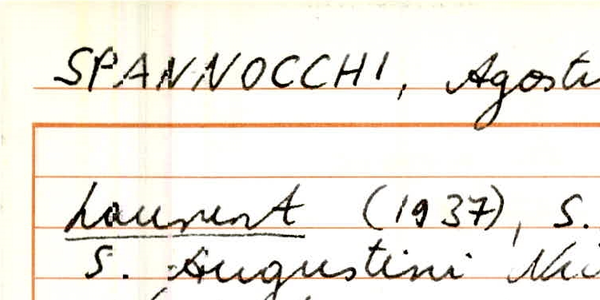 SPANNOCCHI, Agosti
Laurent (1937), S.
S. Augustini Ni